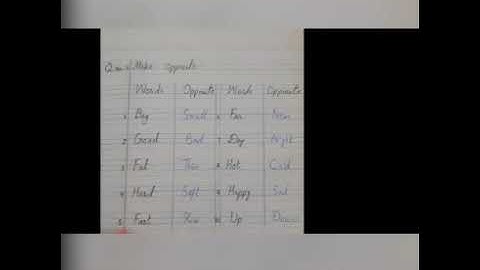 Make opposite
Words Opposite Words Opposite
1 Big Small 6 Far Near
2 Good Bad 7 Day Night
3 Fat Thin 8 Hot Cold
4 Hard Soft 9 Happy Sad
5 Fast Slow 10 Up Down